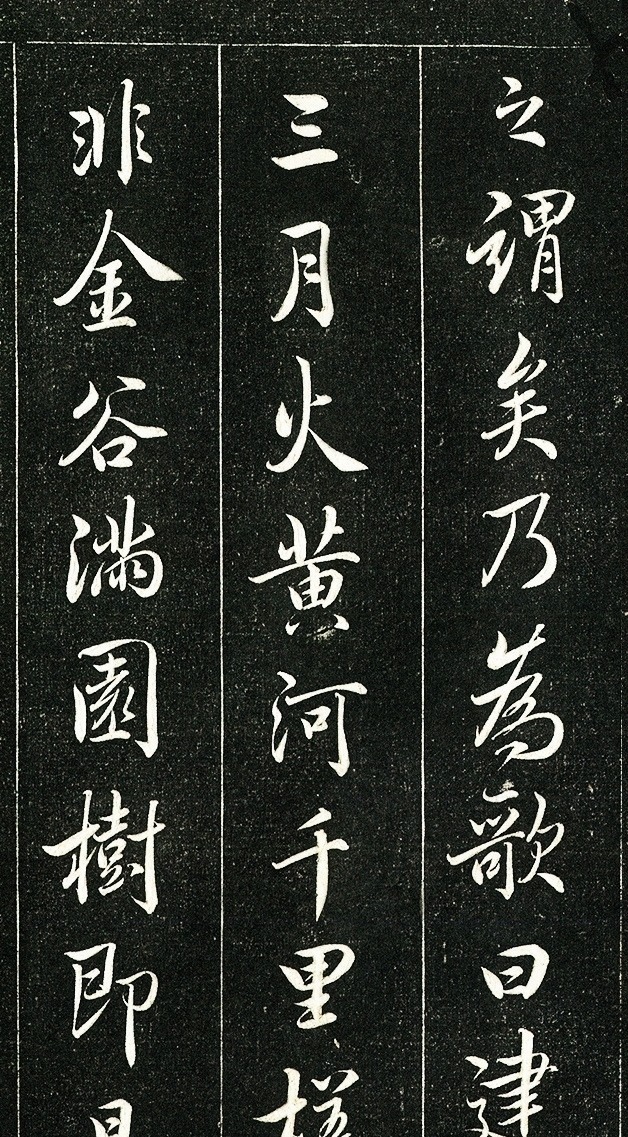 之謂矣乃為歌曰建
三月火黄河千里
非金谷滿園樹即